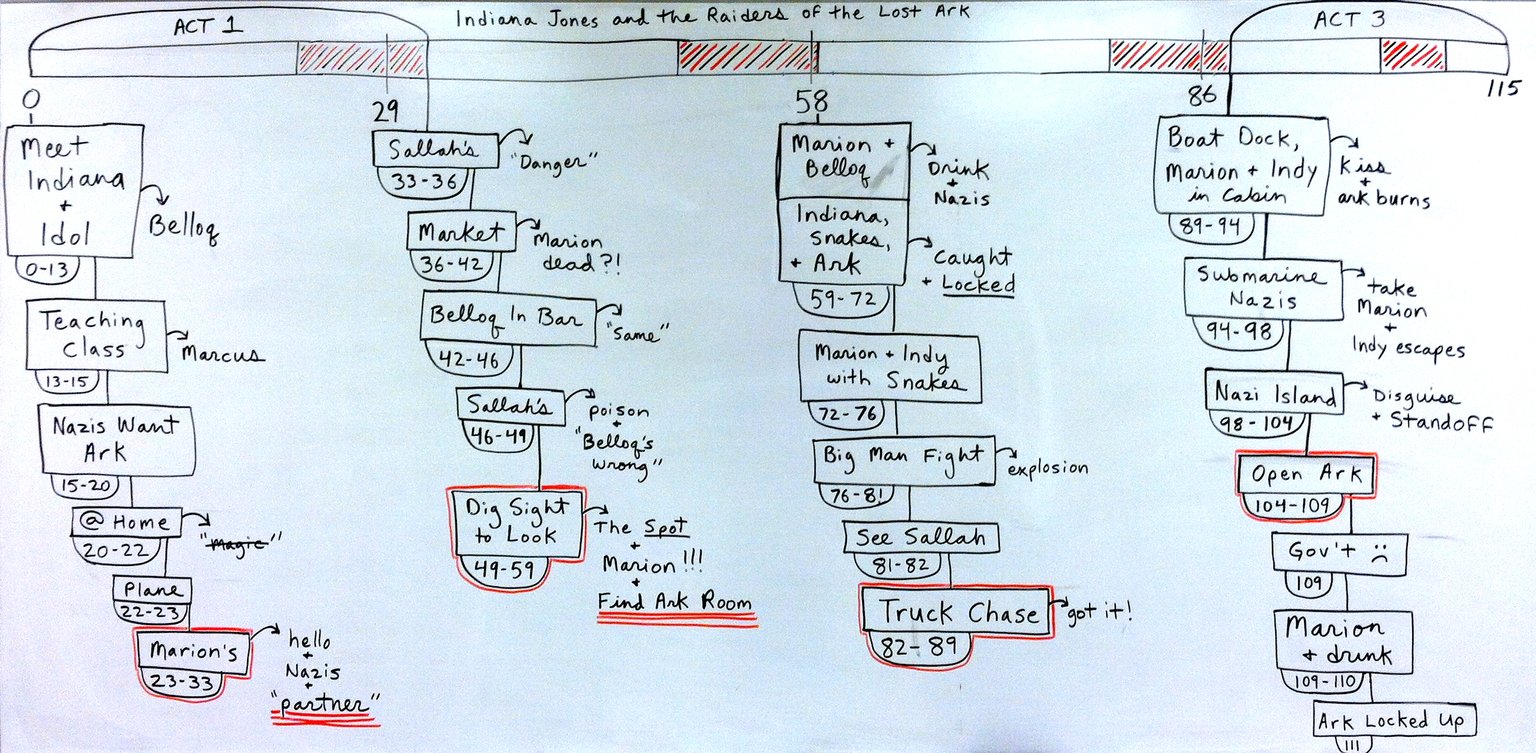 Indiana Jones and the Raiders of the Lost Ark
ACT 1
ACT 3
0
29
58
86
115
Meet
Indiana
+
Idol
Belloq
0-13
Teaching
Class
Marcus
13-15
Nazis Want
Ark
15-20
@ Home
"Magic"
20-22
Plane
22-23
Marion's
23-33
hello
+
Nazis
+
"partner"
Sallah's
"Danger"
33-36
Market
Marion
dead?!
36-42
Belloq In Bar
"Same"
42-46
Sallah's
46-49
poison
+
"Belloq's
wrong"
Dig Sight
to Look
49-59
The Spot
+
Marion!!!
+
Find Ark Room
Marion +
Belloq
Drink
+
Nazis
Indiana,
Snakes,
+ Ark
Caught
+ Locked
59-72
Marion + Indy
with Snakes
72-76
Big Man Fight
explosion
76-81
See Sallah
81-82
Truck Chase
got it!
82-89
Boat Dock,
Marion + Indy
in Cabin
Kiss
+
ark burns
89-94
Submarine
Nazis
94-98
take
Marion
+
Indy escapes
Nazi Island
98-104
Disguise
+ Standoff
Open Ark
104-109
Gov't ☹
109
Marion
+ drunk
109-110
Ark Locked Up
111